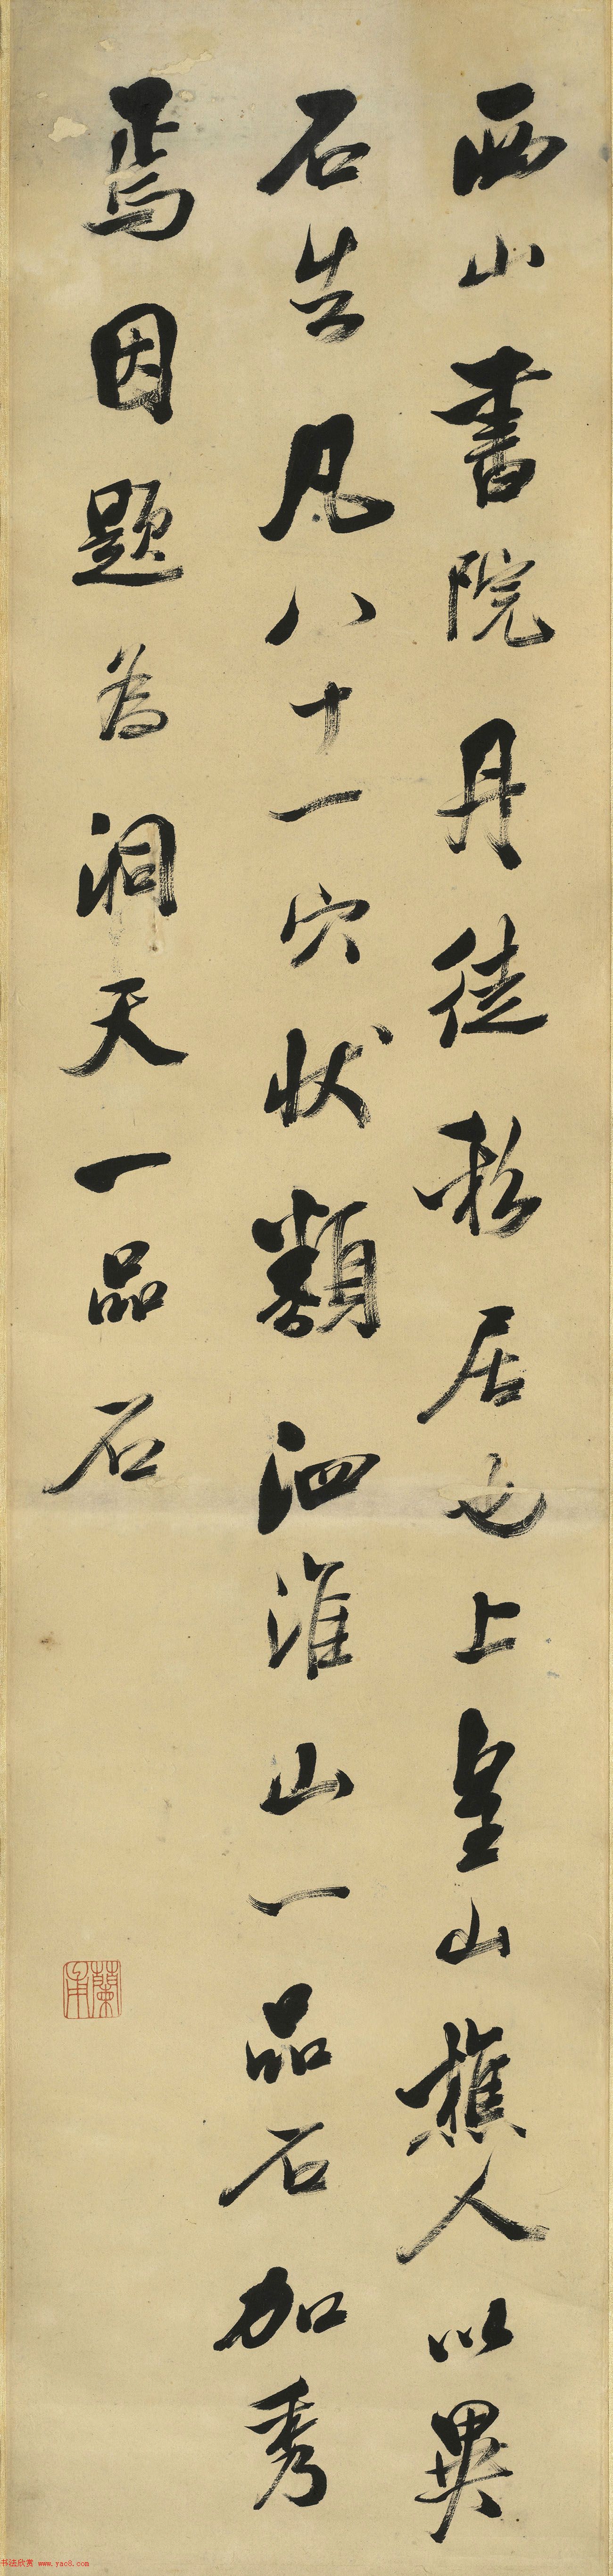 西山書院丹徒私居也上皇山樵人以異
石告凡八十一穴状類泗淮山一品石加秀
焉因題為洞天一品石
蘭甫
书法欣赏 www.yac8.com